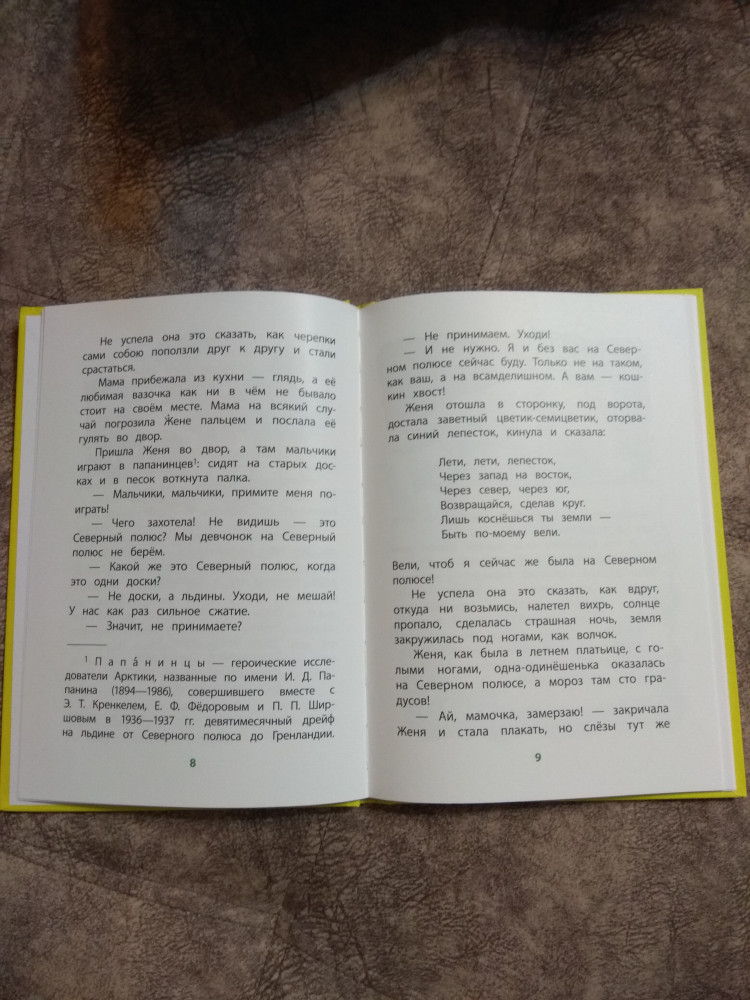 Не успела она это сказать, как черепки
сами собою поползли друг к другу и стали
срастаться.
Мама прибежала из кухни — глядь, а её
любимая вазочка как ни в чём не бывало
стоит на своём месте. Мама на всякий слу-
чай погрозила Жене пальцем и послала её
гулять во двор.
Пришла Женя во двор, а там мальчики
играют в папанинцев¹: сидят на старых дос-
ках и в песок воткнута палка.
— Мальчики, мальчики, примите меня по-
играть!
— Чего захотела! Не видишь — это
Северный полюс? Мы девчонок на Северный
полюс не берём.
— Какой же это Северный полюс, когда
это одни доски?
— Не доски, а льдины. Уходи, не мешай!
У нас как раз сильное сжатие.
— Значит, не принимаете?
¹ Папáнинцы — героические иссле-
дователи Арктики, названные по имени И. Д. Па-
панина (1894—1986), совершившего вместе с
Э. Т. Кренкелем, Е. Ф. Фёдоровым и П. П. Шир-
шовым в 1936—1937 гг. девятимесячный дрейф
на льдине от Северного полюса до Гренландии.
8
— Не принимаем. Уходи!
— И не нужно. Я и без вас на Север-
ном полюсе сейчас буду. Только не на таком,
как ваш, а на всамделишном. А вам — кош-
кин хвост!
Женя отошла в сторонку, под ворота,
достала заветный цветик-семицветик, оторва-
ла синий лепесток, кинула и сказала:
Лети, лети, лепесток,
Через запад на восток,
Через север, через юг,
Возвращайся, сделав круг.
Лишь коснёшься ты земли —
Быть по-моему вели.
Вели, чтоб я сейчас же была на Северном
полюсе!
Не успела она это сказать, как вдруг,
откуда ни возьмись, налетел вихрь, солнце
пропало, сделалась страшная ночь, земля
закружилась под ногами, как волчок.
Женя, как была в летнем платьице, с го-
лыми ногами, одна-одинёшенька оказалась
на Северном полюсе, а мороз там сто гра-
дусов!
— Ай, мамочка, замерзаю! — закричала
Женя и стала плакать, но слёзы тут же
9